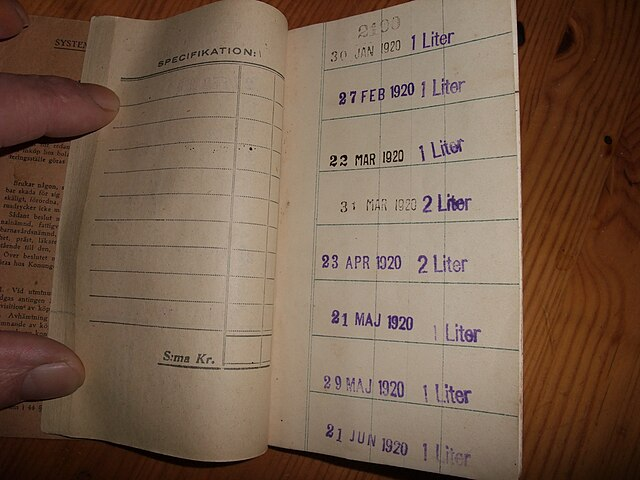 SPECIFIKATION:
S:ma Kr.
2199
30 JAN 1920 1 Liter
27 FEB 1920 1 Liter
22 MAR 1920 1 Liter
31 MAR 1920 2 Liter
23 APR 1920 2 Liter
21 MAJ 1920 1 Liter
29 MAJ 1920 1 Liter
21 JUN 1920 1 Liter